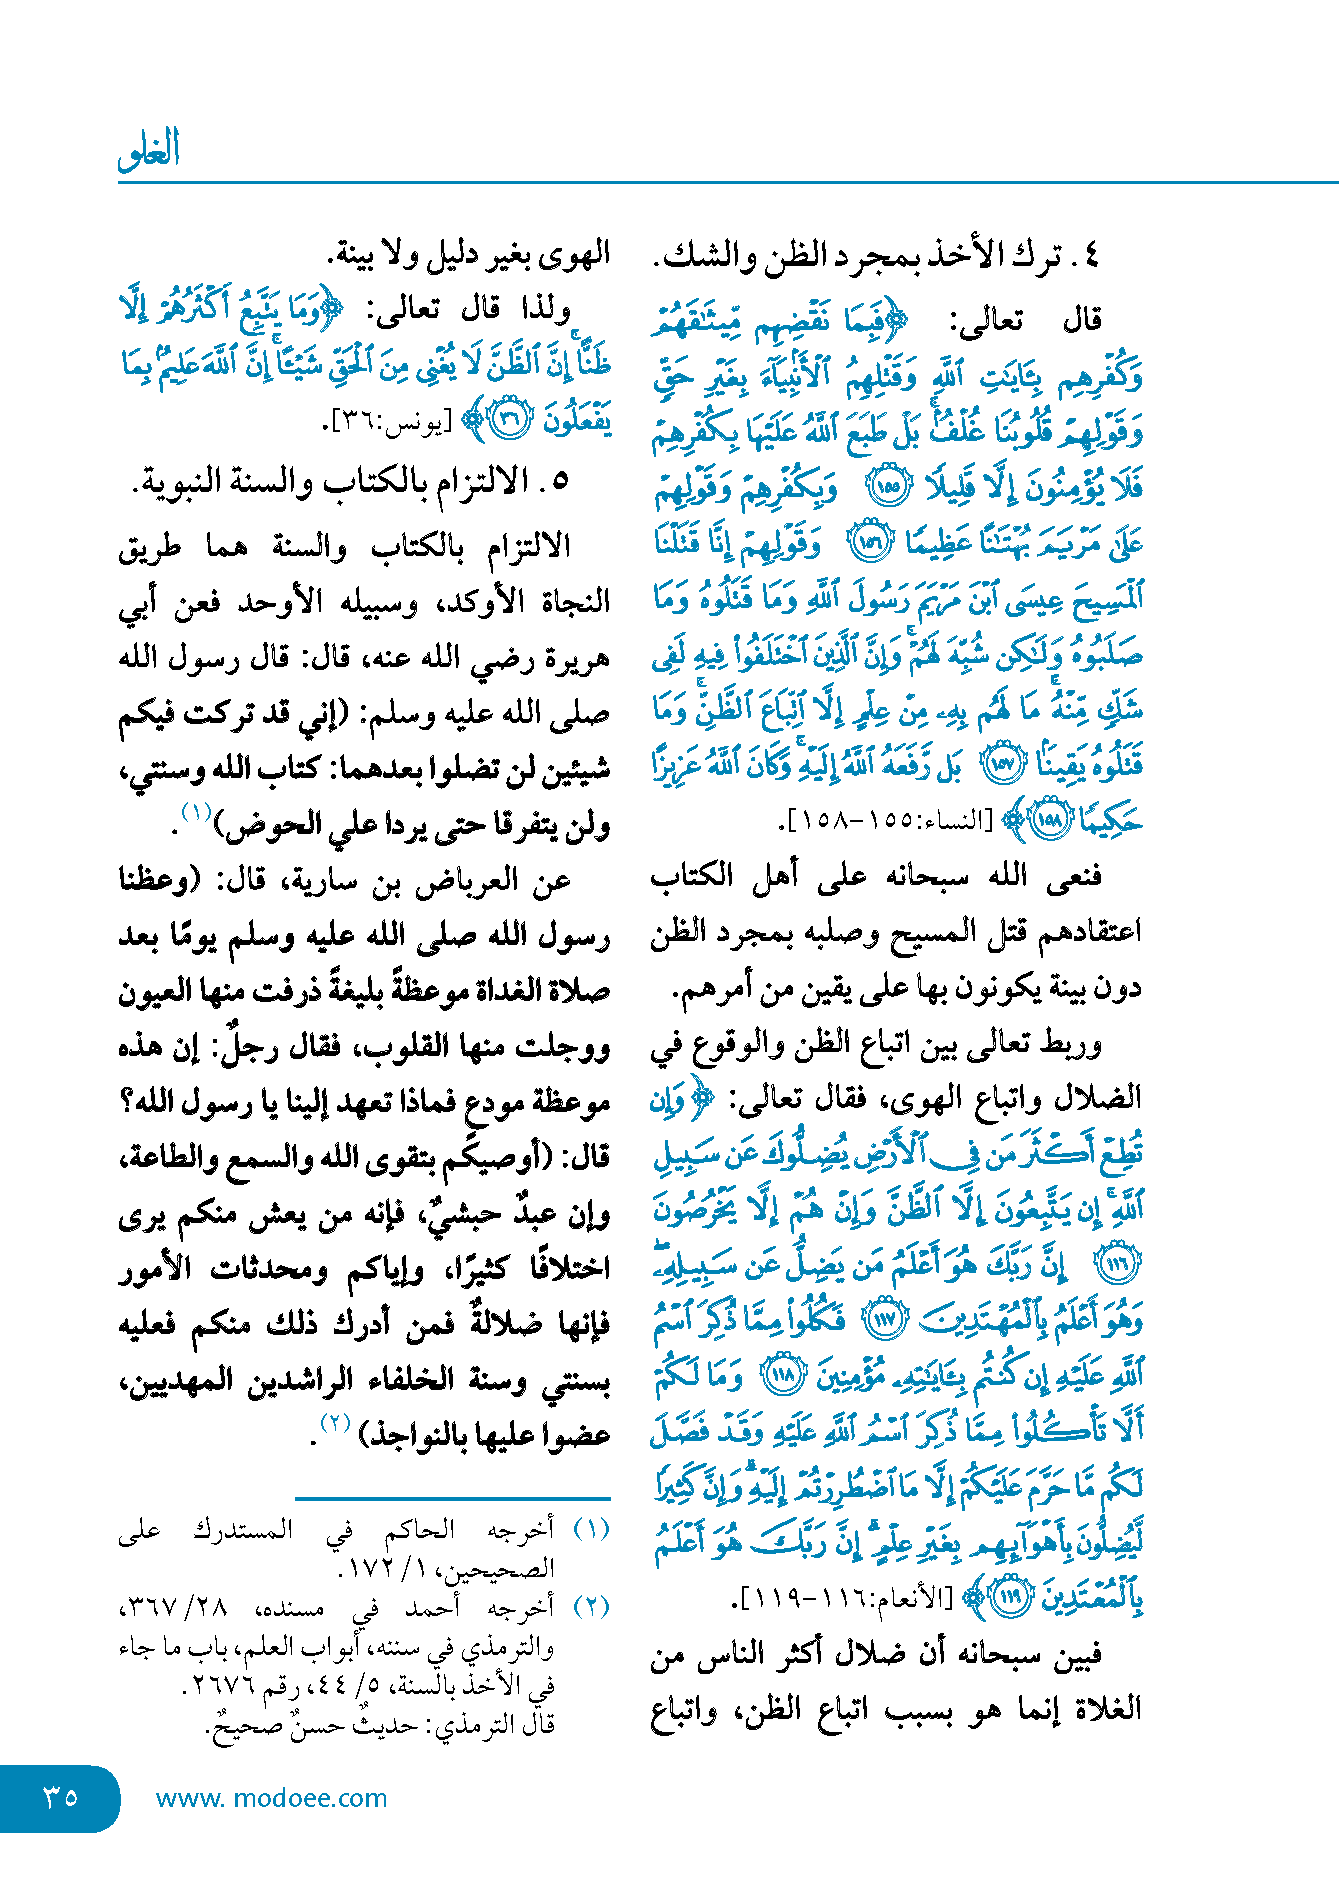 الغلو
٤. ترك الأخذ بمجرد الظن والشك.
قال تعالى: ﴿فَبِمَا نَقْضِهِم مِّيثَٰقَهُمْ
وَكُفْرِهِم بِـَٔايَٰتِ ٱللَّهِ وَقَتْلِهِمُ ٱلْأَنۢبِيَآءَ بِغَيْرِ حَقٍّ
وَقَوْلِهِمْ قُلُوبُنَا غُلْفٌۢ ۚ بَلْ طَبَعَ ٱللَّهُ عَلَيْهَا بِكُفْرِهِمْ
فَلَا يُؤْمِنُونَ إِلَّا قَلِيلًا ﴿١٥٥﴾ وَبِكُفْرِهِمْ وَقَوْلِهِمْ
عَلَىٰ مَرْيَمَ بُهْتَٰنًا عَظِيمًا ﴿١٥٦﴾ وَقَوْلِهِمْ إِنَّا قَتَلْنَا
ٱلْمَسِيحَ عِيسَى ٱبْنَ مَرْيَمَ رَسُولَ ٱللَّهِ وَمَا قَتَلُوهُ وَمَا
صَلَبُوهُ وَلَٰكِن شُبِّهَ لَهُمْ ۚ وَإِنَّ ٱلَّذِينَ ٱخْتَلَفُوا۟ فِيهِ لَفِى
شَكٍّ مِّنْهُ ۚ مَا لَهُم بِهِۦ مِنْ عِلْمٍ إِلَّا ٱتِّبَاعَ ٱلظَّنِّ ۚ وَمَا
قَتَلُوهُ يَقِينًۢا ﴿١٥٧﴾ بَل رَّفَعَهُ ٱللَّهُ إِلَيْهِ ۚ وَكَانَ ٱللَّهُ عَزِيزًا
حَكِيمًا ﴿١٥٨﴾﴾ [النساء:١٥٥-١٥٨].
فنعى الله سبحانه على أهل الكتاب
اعتقادهم قتل المسيح وصلبه بمجرد الظن
دون بينة يكونون بها على يقين من أمرهم.
وربط تعالى بين اتباع الظن والوقوع في
الضلال واتباع الهوى، فقال تعالى: ﴿وَإِن
تُطِعْ أَكْثَرَ مَن فِى ٱلْأَرْضِ يُضِلُّوكَ عَن سَبِيلِ
ٱللَّهِ ۚ إِن يَتَّبِعُونَ إِلَّا ٱلظَّنَّ وَإِنْ هُمْ إِلَّا يَخْرُصُونَ
﴿١١٦﴾ إِنَّ رَبَّكَ هُوَ أَعْلَمُ مَن يَضِلُّ عَن سَبِيلِهِۦ ۖ
وَهُوَ أَعْلَمُ بِٱلْمُهْتَدِينَ ﴿١١٧﴾ فَكُلُوا۟ مِمَّا ذُكِرَ ٱسْمُ
ٱللَّهِ عَلَيْهِ إِن كُنتُم بِـَٔايَٰتِهِۦ مُؤْمِنِينَ ﴿١١٨﴾ وَمَا لَكُمْ
أَلَّا تَأْكُلُوا۟ مِمَّا ذُكِرَ ٱسْمُ ٱللَّهِ عَلَيْهِ وَقَدْ فَصَّلَ
لَكُم مَّا حَرَّمَ عَلَيْكُمْ إِلَّا مَا ٱضْطُرِرْتُمْ إِلَيْهِ ۗ وَإِنَّ كَثِيرًا
لَّيُضِلُّونَ بِأَهْوَآئِهِم بِغَيْرِ عِلْمٍ ۗ إِنَّ رَبَّكَ هُوَ أَعْلَمُ
بِٱلْمُعْتَدِينَ ﴿١١٩﴾﴾ [الأنعام:١١٦-١١٩].
فبين سبحانه أن ضلال أكثر الناس من
الغلاة إنما هو بسبب اتباع الظن، واتباع
الهوى بغير دليل ولا بينة.
ولذا قال تعالى: ﴿وَمَا يَتَّبِعُ أَكْثَرُهُمْ إِلَّا
ظَنًّا ۚ إِنَّ ٱلظَّنَّ لَا يُغْنِى مِنَ ٱلْحَقِّ شَيْـًٔا ۚ إِنَّ ٱللَّهَ عَلِيمٌۢ بِمَا
يَفْعَلُونَ ﴿٣٦﴾﴾ [يونس:٣٦].
٥. الالتزام بالكتاب والسنة النبوية.
الالتزام بالكتاب والسنة هما طريق
النجاة الأوكد، وسبيله الأوحد فعن أبي
هريرة رضي الله عنه، قال: قال رسول الله
صلى الله عليه وسلم: (إني قد تركت فيكم
شيئين لن تضلوا بعدهما: كتاب الله وسنتي،
ولن يتفرقا حتى يردا علي الحوض)(١).
عن العرباض بن سارية، قال: (وعظنا
رسول الله صلى الله عليه وسلم يومًا بعد
صلاة الغداة موعظةً بليغةً ذرفت منها العيون
ووجلت منها القلوب، فقال رجلٌ: إن هذه
موعظة مودع فماذا تعهد إلينا يا رسول الله؟
قال: (أوصيكم بتقوى الله والسمع والطاعة،
وإن عبدٌ حبشيٌ، فإنه من يعش منكم يرى
اختلافًا كثيرًا، وإياكم ومحدثات الأمور
فإنها ضلالةٌ فمن أدرك ذلك منكم فعليه
بسنتي وسنة الخلفاء الراشدين المهديين،
عضوا عليها بالنواجذ) (٢).
(١) أخرجه الحاكم في المستدرك على
الصحيحين، ١/ ١٧٢.
(٢) أخرجه أحمد في مسنده، ٢٨/ ٣٦٧،
والترمذي في سننه، أبواب العلم، باب ما جاء
في الأخذ بالسنة، ٥/ ٤٤، رقم ٢٦٧٦.
قال الترمذي: حديثٌ حسنٌ صحيحٌ.
www. modoee.com
٣٥